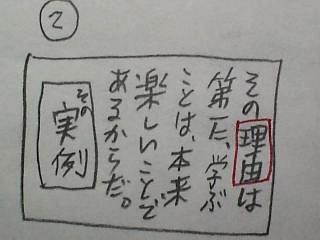 ②
その理由は
第一に、学ぶ
ことは、本来
楽しいことで
あるからだ。
その
実例